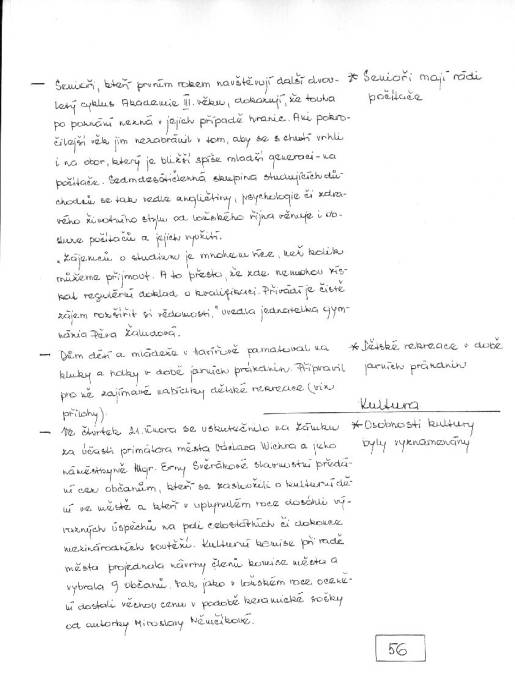 — Senioři, kteří prvním rokem navštěvují další dvou-
letý cyklus Akademie III. věku, dokazují, že touha
po poznání nezná v jejich případě hranic. Ani pokro-
čilejší věk jim nezabránil v tom, aby se s chutí vrhli
i na obor, který je bližší spíše mladší generaci - na
počítače. Sedmdesátičlenná skupina studujících dů-
chodců se tak vedle angličtiny, psychologie či zdra-
vého životního stylu od loňského října věnuje i ob-
sluze počítačů a jejich využití.
"Zájemců o studium je mnohem více, než kolik
můžeme přijmout. A to přesto, že zde nemohou zís-
kat regulérní doklad o kvalifikaci. Přivádí je čistě
zájem rozšířit si vědomosti," uvedla jednatelka gym-
názia Péva Žaludová.
* Senioři mají rádi
počítače
— Dům dětí a mládeže v Karviné pamatoval na
kluky a holky v době jarních prázdnin. Připravil
pro ně zajímavé nabídky dětské rekreace (viz
přílohy).
* Dětské rekreace v době
jarních prázdnin
Kultura
— Ve čtvrtek 21. února se uskutečnilo na Zámku
za účasti primátora města Václava Wichra a jeho
náměstkyně Mgr. Erny Svěrákové slavnostní předá-
ní cen občanům, kteří se zasloužili o kulturní dě-
ní ve městě a kteří v uplynulém roce dosáhli vý-
razných úspěchů na poli celostátních či dokonce
mezinárodních soutěží. Kulturní komise při radě
města projednala návrhy členů komise města a
vybrala 9 občanů. Tak jako v loňském roce, oceně-
ní dostali věcnou cenu v podobě keramické sošky
od autorky Miroslavy Němčíkové.
* Osobnosti kultury
byly vyznamenány
56